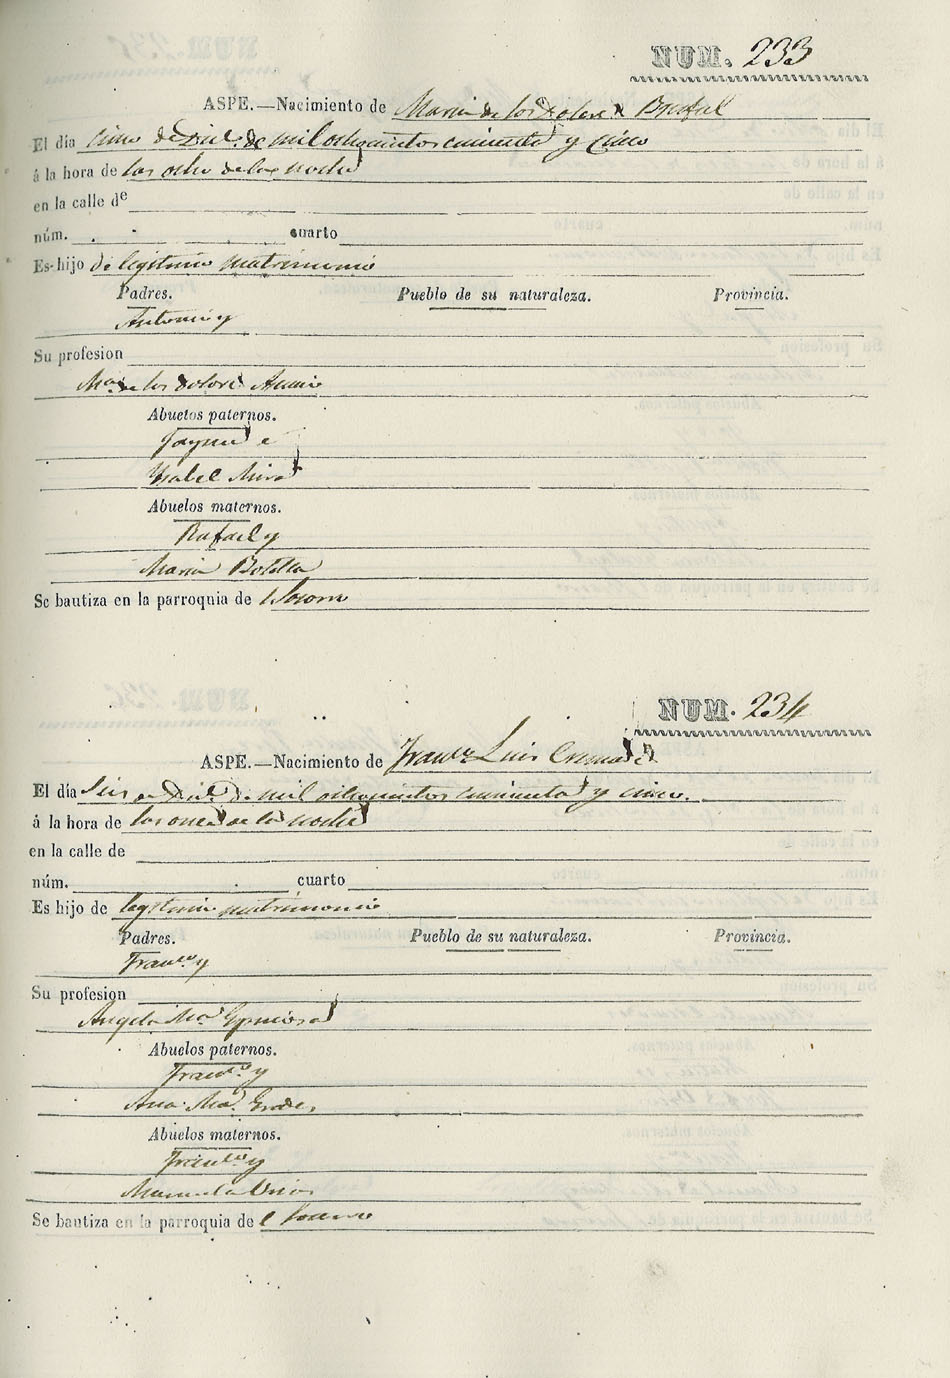 NUM. 233
ASPE.—Nacimiento de Maria de los Dolores
El día cinco de Dic.e de mil ochocientos cincuenta y cinco
á la hora de las ocho de la noche
en la calle de
núm. cuarto
Es hijo de legitimo matrimonio
Padres. Pueblo de su naturaleza. Provincia.
Antonio y
Su profesion
M.a de los Dolores
Abuelos paternos.
Jayme e
Ysabel Mira
Abuelos maternos.
Rafael y
Maria Botella
Se bautiza en la parroquia de l Socorro
NUM. 234
ASPE.—Nacimiento de Luis
El día Seis de Dic.e de mil ochocientos cincuenta y cinco.
á la hora de las once de la noche
en la calle de
núm. cuarto
Es hijo de legitimo matrimonio
Padres. Pueblo de su naturaleza. Provincia.
Fran.co y
Su profesion
Angela M.a
Abuelos paternos.
Fran.co y
Ana M.a
Abuelos maternos.
Fran.co y
Manuela
Se bautiza en la parroquia de l Socorro